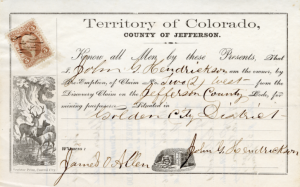 Territory of Colorado,
COUNTY OF JEFFERSON.
Know all Men by these Presents, That
I, John G. Hendrickson am the owner, by
Pre-Emption, of Claim No. West from
the Discovery Claim on the Jefferson County Lode, for
mining purposes. Situated in
Golden City District
WITNESS:
James O Allen
John G Hendrickson